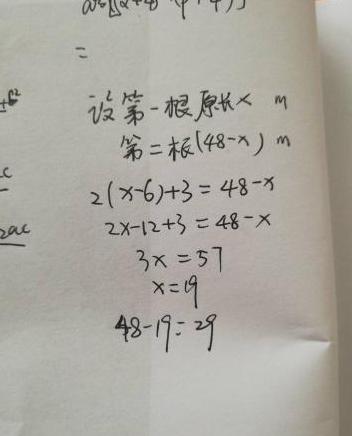 =
设第一根原长x m
第二根(48-x) m
2(x-6)+3=48-x
2x-12+3=48-x
3x=57
x=19
48-19=29
2ac